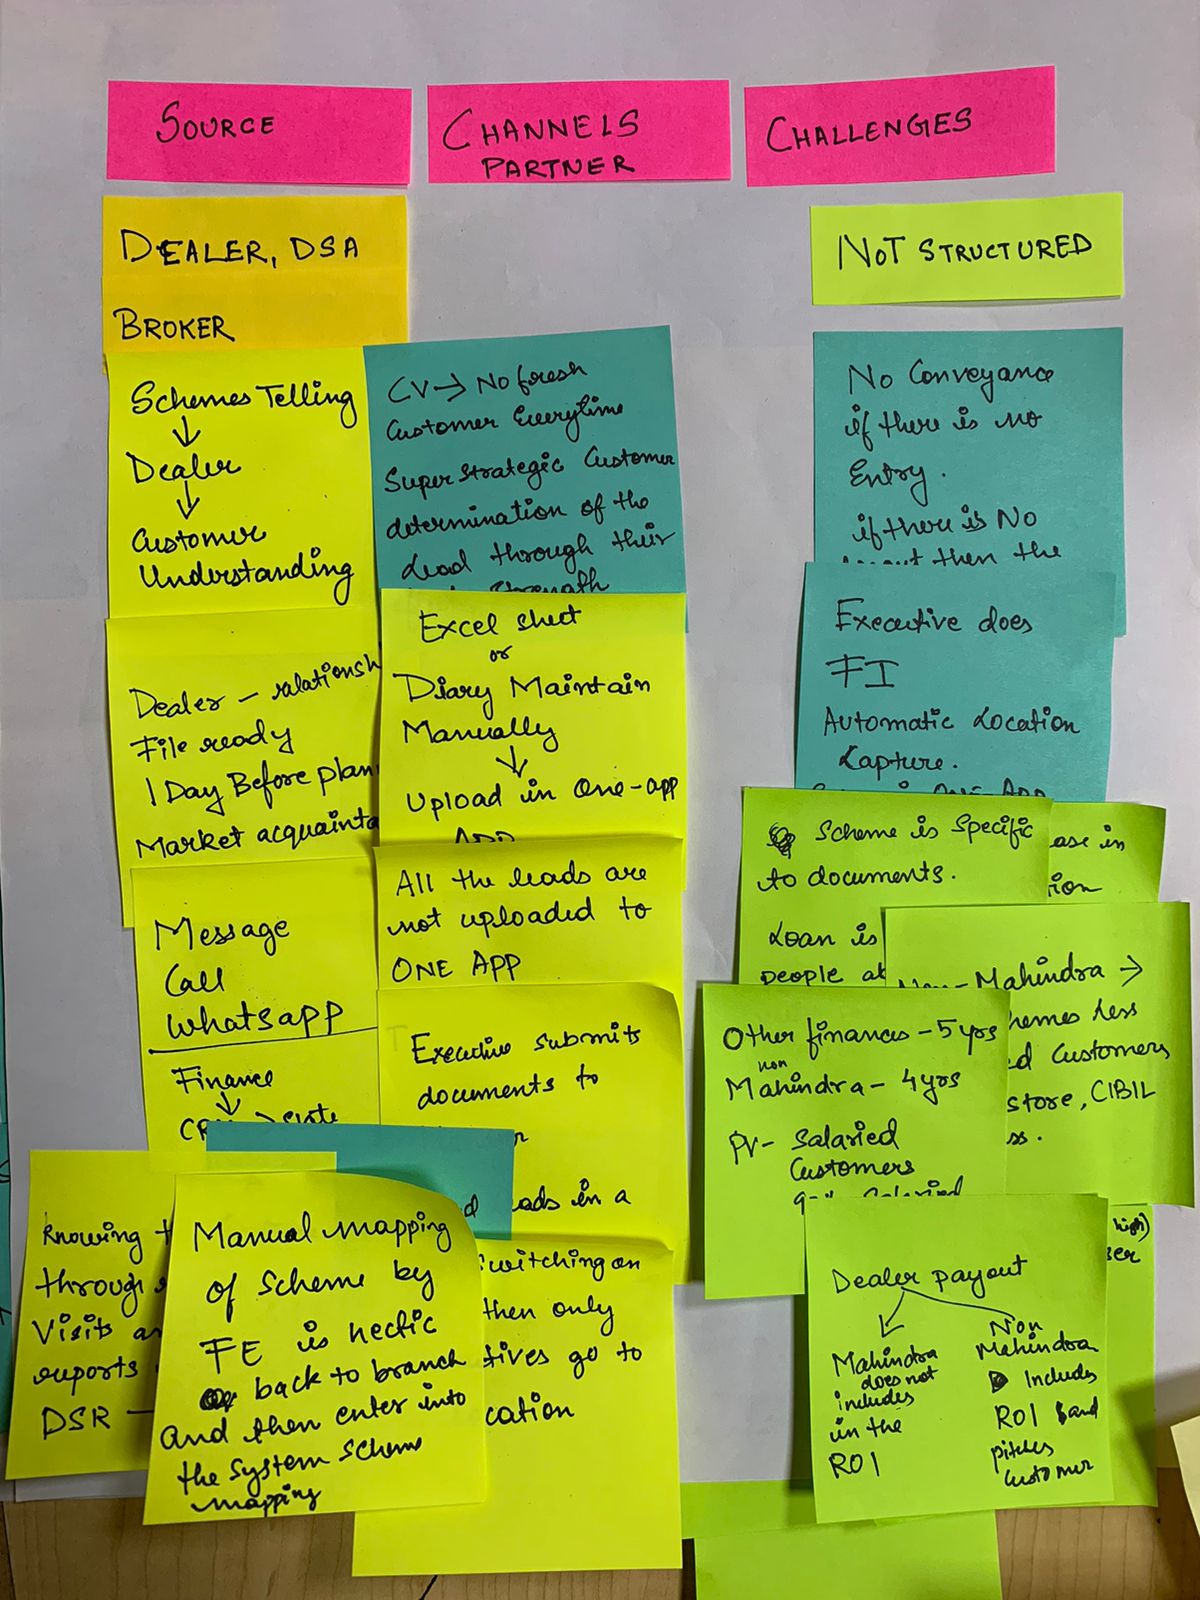 SOURCE
CHANNELS
PARTNER
CHALLENGES
DEALER, DSA
BROKER
Schemes Telling
↓
Dealer
↓
Customer
Understanding
Dealer – relationsh
File ready
1 Day Before plan
Market acquainta
Message
Call
Whatsapp
Finance
↓
Knowing
through
Visits
reports
DSR –
Manual mapping
of scheme by
FE is hectic
back to branch
and then enter into
the system scheme
mapping
CV → No fresh
Customer Everytime
Super strategic Customer
determination of the
Lead through their
Strength
Excel sheet
or
Diary Maintain
Manually
↓
Upload in One-app
APP
All the leads are
not uploaded to
ONE APP
Executive submits
documents to
in a
witching on
then only
tives go to
cation
NOT STRUCTURED
No Conveyance
if there is no
Entry.
if there is No
then the
Executive does
FI
Automatic Location
Capture.
Scheme is Specific
to documents.
Loan is
people at
ase in
ion
Mahindra →
hemes less
d Customers
store, CIBIL
ss.
Other finances – 5 yrs
non
Mahindra – 4 yrs
PV – Salaried
Customers
Salaried
high)
ser
Dealer payout
Mahindra
does not
includes
in the
ROI
Non
Mahindra
Includes
ROI and
pitches
customer